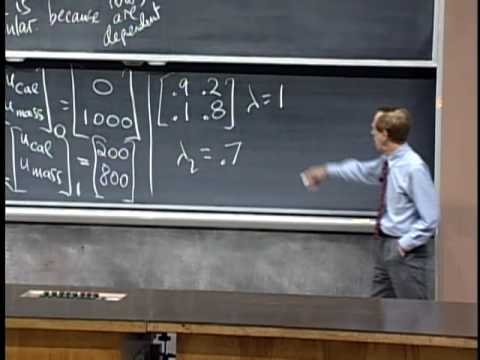 is
because rows
are
dependent
u cal
u mass 0 = 0
1000
.9 .2
.1 .8
λ = 1
u cal
u mass 1 = 200
800
λ₂ = .7